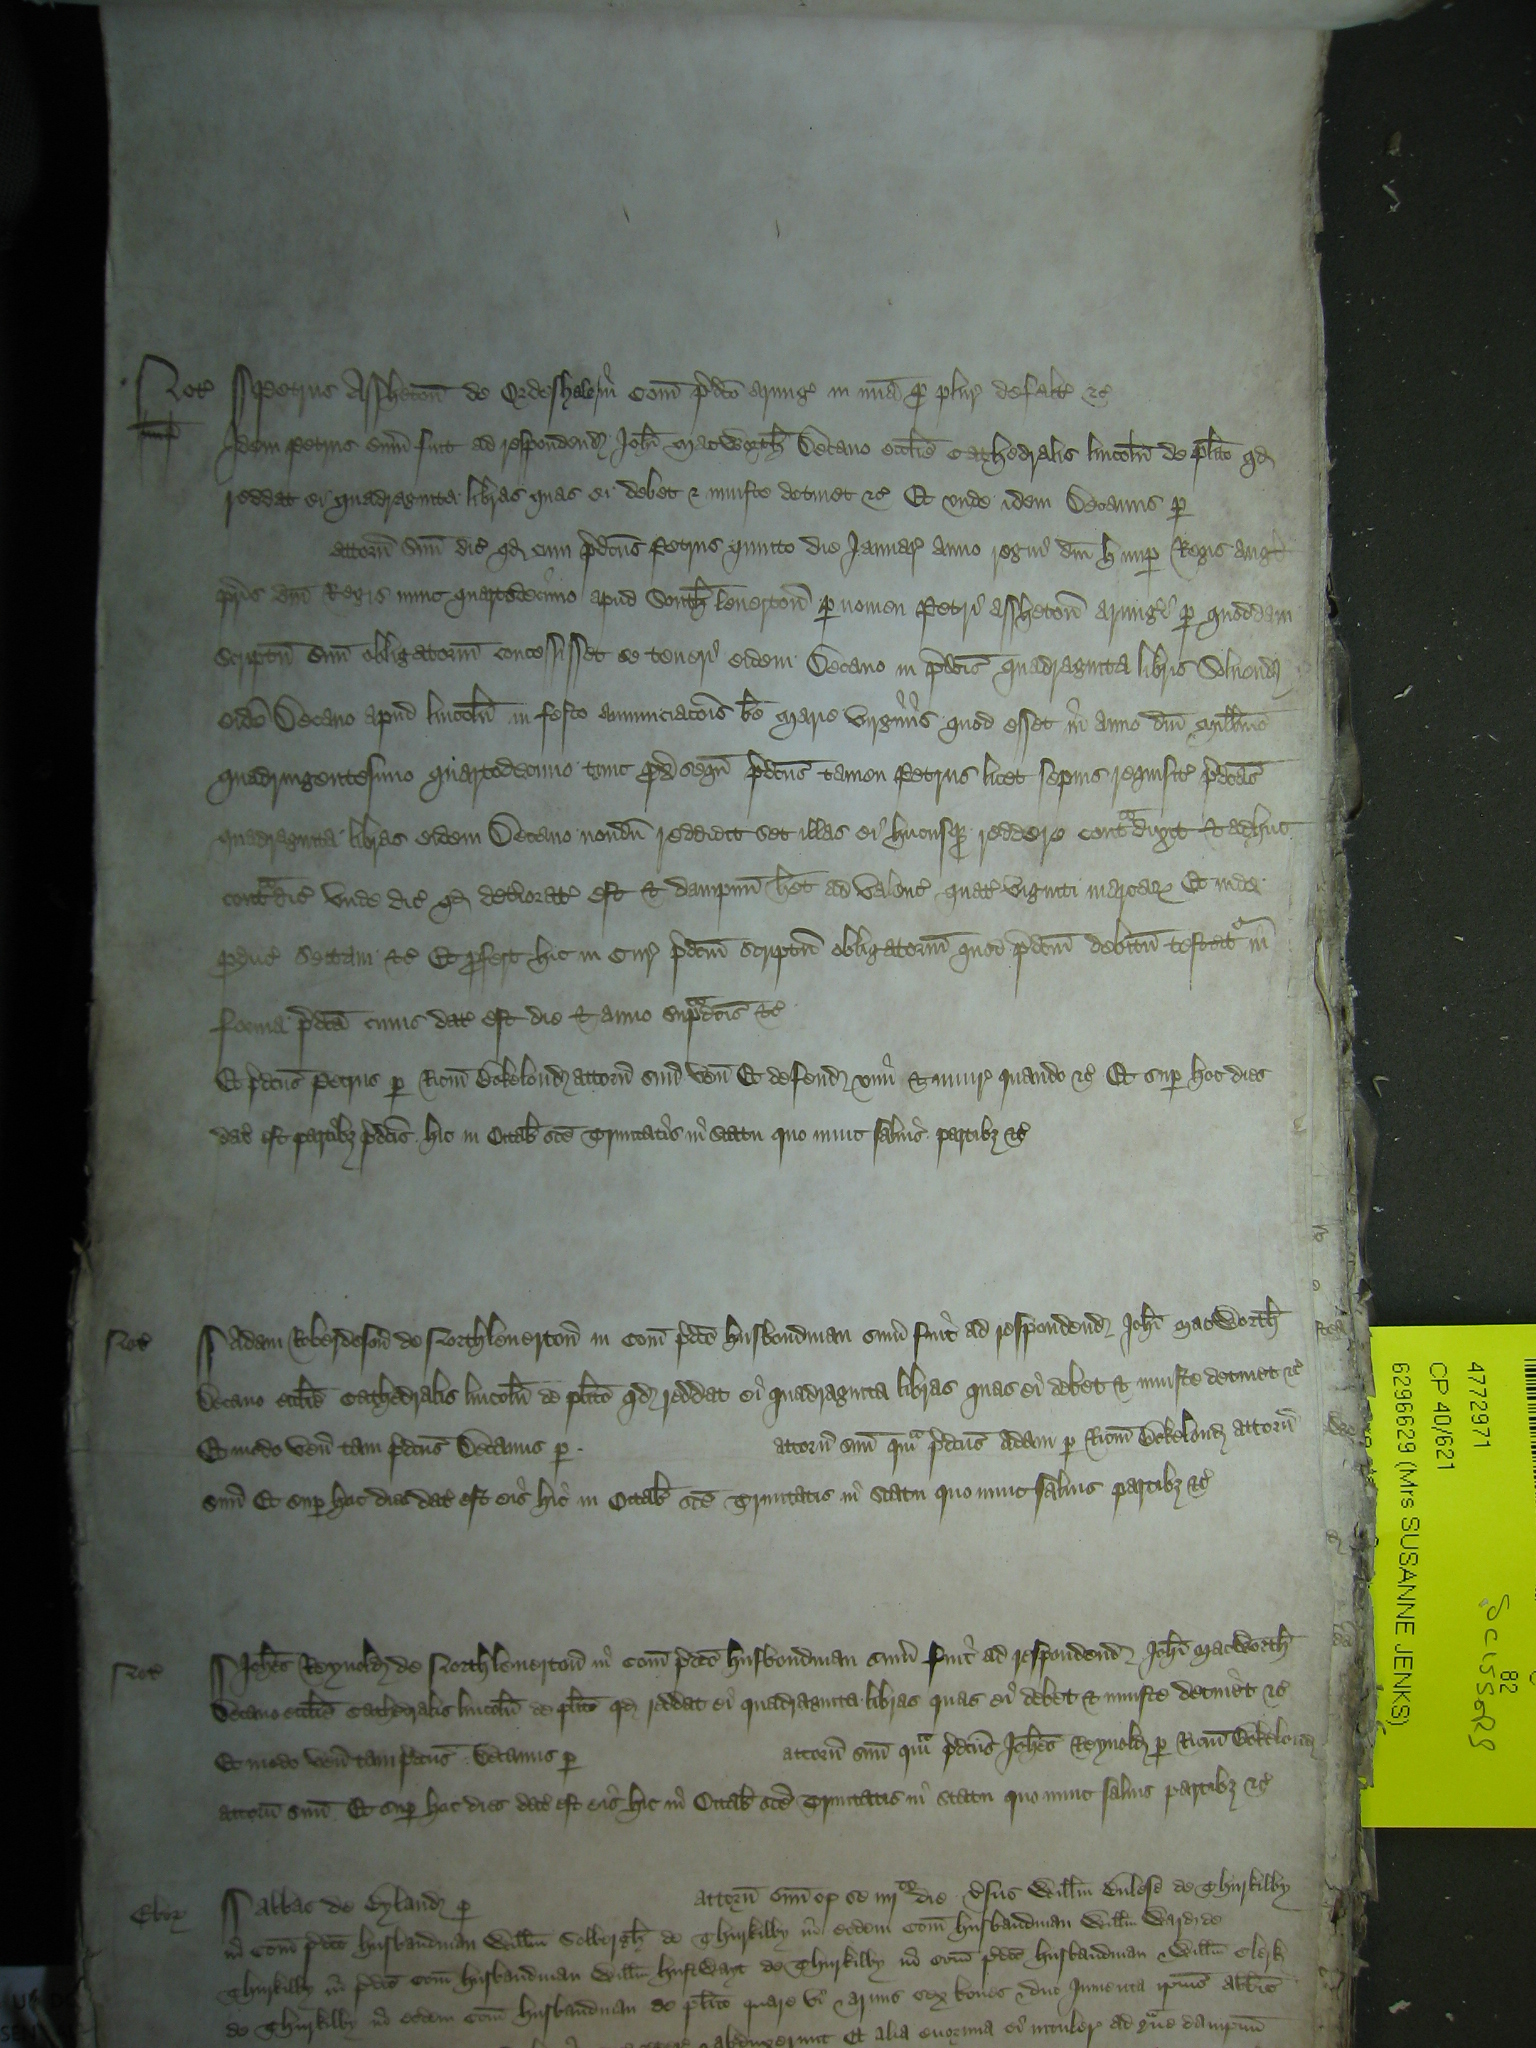 Not Petrus Assheton de Ordeshale in Com pdco armig in mia p plur defalt &c
Idem Petrus sum fuit ad respondend Johi Macworth Decano ecclie Cathedralis lincoln de plito qd
reddat ei quadraginta libras quas ei debet & iniuste detinet &c Et unde idem Decanus p
attorn suu dic qd cum pdcus Petrus quinto die Januar anno regni dni H nup Regis Angl
pris dni Regis nunc quartodecimo apud South leuerton p nomen Petri Assheton armigi p quoddam
scriptu suu obligatoriu concessisset se teneri eidem Decano in pdcis quadraginta libris Soluend
eide Decano apud lincoln in festo annunciacois be Marie virginis quod esset in anno dni millimo
quadringentesimo quartodecimo tunc px sequ pdcus tamen Petrus licet sepius requisit pdcas
quadraginta libras eidem Decano nondu reddidit set illas ei hucusq reddere contradixit & adhuc
contradic unde dic qd deteriorat est & dampnu het ad valenc quat viginti marcar Et inde
pduc sectam &c Et pfert hic in Cur pdcm scriptu obligatoriu quod pdcm debitu testatr in
forma pdca cuius dat est die & anno supradcis &c
Et pdcus Petrus p Ricm Bokelond attorn suu ven Et defend vim & iniur quando &c Et sup hoc dies
dat est partibz pdcis hic in Octab sce Trinitatis in statu quo nunc saluis partibz &c
Not Adam Roberdeson de Northleuerton in Com pdco husbondman sum fuit ad respondend Johi Macworth
Decano ecclie Cathedralis lincoln de plito qd reddat ei quadraginta libras quas ei debet & iniuste detinet &c
Et modo ven tam pdcus Decanus p attorn suu qm pdcus Adam p Ricm Bokelond attorn
suu Et sup hoc dies dat est eis hic in Octab sce Trinitatis in statu quo nunc saluis partibz &c
Not Johes Reynold de Northleuerton in Com pdco husbondman sum fuit ad respondend Johi Macworth
Decano ecclie Cathedralis lincoln de plito qd reddat ei quadraginta libras quas ei debet & iniuste detinet &c
Et modo ven tam pdcus Decanus p attorn suu qm pdcus Johes Reynold p Ricm Bokelond
attorn suu Et sup hoc dies dat est eis hic in Octab sce Trinitatis in statu quo nunc saluis partibz &c
Ebor Abbas de Byland p attorn suu op se iiij die vsus Willm de Thurkilby
in Com pdco husbandman Willm de Thurkilby in eodem Com husbandman Willm Ward de
Thurkilby in pdco Com husbandman Willm de Thurkilby in Com pdco husbandman & Willm Clerk
de Thurkilby in eodem Com husbandman de plito quare vi & armis sex boues & duo Jumenta ipius Abbis
abduxerunt Et alia enormia ei intuler ad graue dampnu
4772971
CP 40/621
6296629 (Mrs SUSANNE JENKS)
82
SCISSORS